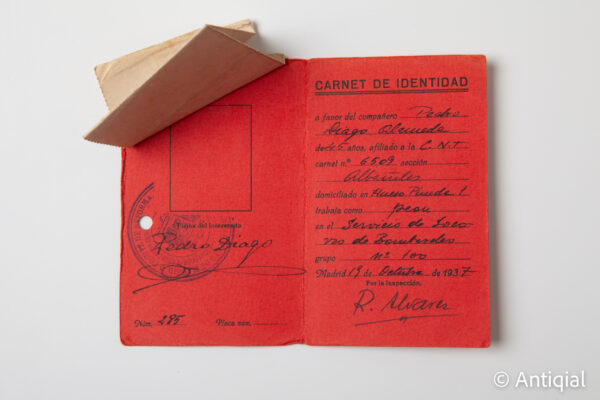 Firma del interesado
Pedro Diago
Núm. 285 Placa núm.
CARNET DE IDENTIDAD
a favor del compañero Pedro
Diago Almeda
de 45 años, afiliado a la C.N.T.
carnet n.º 6509 sección
Albañiles
domiciliado en
trabaja como peon
en el Servicio de Soco-
rro de Bombardeo
grupo nº 100
Madrid 19 de Octubre de 1937
Por la Inspección,
R. Alvares
© Antiqial